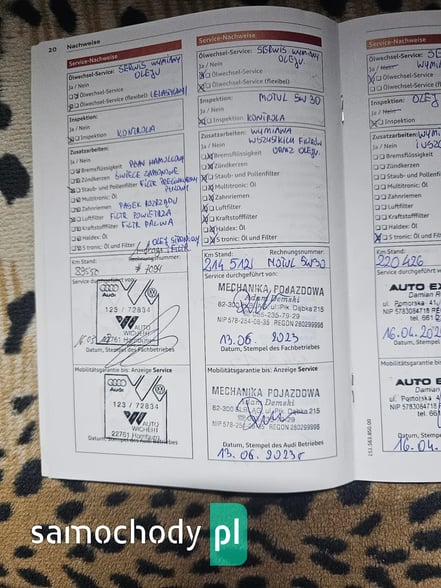 20 Nachweise
Service-Nachweise
Ölwechsel-Service: SERWIS WYMIANY
OLEJU
Ja / Nein
Ölwechsel-Service
Ölwechsel-Service (flexibel)
Inspektion:
Ja / Nein
Inspektion KONTROLA
Zusatzarbeiten:
Ja / Nein
Bremsflüssigkeit PŁYN HAMULCOWY
Zündkerzen ŚWIECE ŻAROWE
Staub- und Pollenfilter FILTR
PYŁKOWY
Multitronic: Öl
Zahnriemen PASEK ROZRZĄDU
Luftfilter FILTR POWIETRZA
Kraftstofffilter FILTR PALIWA
Haldex: Öl
S tronic: Öl und Filter
Km Stand: Rechnungsnummer:
Service durchgeführt von:
Audi
123 / 72834
AUTO
WICHERT
22761 Hamburg
Datum, Stempel des Fachbetriebes
Mobilitätsgarantie bis: Anzeige Service
Audi
123 / 72834
AUTO
WICHERT
22761 Hamburg
Datum, Stempel des Audi Betriebes
Service-Nachweise
Ölwechsel-Service: SERWIS WYMIANY
OLEJU
Ja / Nein
Ölwechsel-Service
Ölwechsel-Service (flexibel)
Inspektion: MOTUL 5W30
Ja / Nein
Inspektion KONTROLA
Zusatzarbeiten: WYMIANA
Ja / Nein WSZYSTKICH FILTRÓW
Bremsflüssigkeit ORAZ OLEJU.
Zündkerzen
Staub- und Pollenfilter
Multitronic: Öl
Zahnriemen
Luftfilter
Kraftstofffilter
Haldex: Öl
S tronic: Öl und Filter
Km Stand: Rechnungsnummer:
214 512 MOTUL 5W30
Service durchgeführt von:
MECHANIKA POJAZDOWA
Adam Demski
82-300
NIP 578-254-08-35 REGON 280299998
13.06.2023
Datum, Stempel des Fachbetriebes
Mobilitätsgarantie bis: Anzeige Service
MECHANIKA POJAZDOWA
Adam Demski
82-300 ELBLĄG ul. Płk. Dąbka 215
REGON 280299998
Datum, Stempel des Audi Betriebes
13.06.2023r
Service-Nachweise
Ölwechsel-Service:
Ja / Nein
Ölwechsel-Service
Ölwechsel-Service
Inspektion: OLEJ
Ja / Nein
Inspektion
Zusatzarbeiten:
Ja / Nein
Bremsflüssigkeit
Zündkerzen
Staub- und Pollenfilter
Multitronic: Öl
Zahnriemen
Luftfilter
Kraftstofffilter
Haldex: Öl
S tronic: Öl und Filter
Km Stand:
220 426
Service durchgeführt von:
AUTO
Damian
ul. Pomorska
NIP 5783084718
tel. 661
16.04.202
Datum, Stempel
Mobilitätsgarantie bis:
AUTO
Damian
ul. Pomorska
NIP 5783084718
tel. 66
16.04.
Datum, Stempel
151.563.850.00
samochody pl